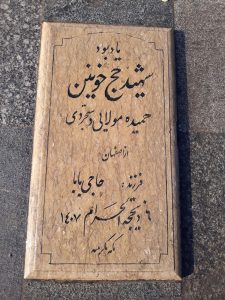 یادبود
شهید حج خونین
حمیده مولایی دستجردی
از اصفهان
فرزند: حاجی بابا
۶ ذیحجة الحرام ۱۴۰۷
مکه مکرمه